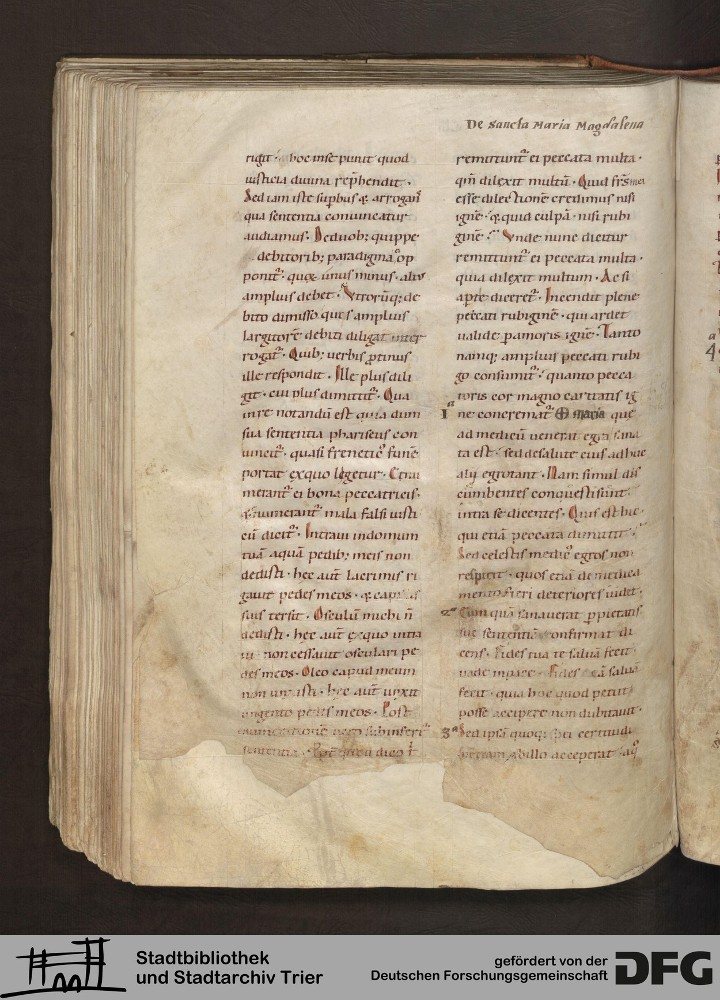 De Sancta Maria Magdalena
rigit · hoc inse puniit quod
iusticia diuina rep̄hendit ·
Sed iam iste suꝑbus & arrogan̄
qua sententia conuincatur
audiamus · De duob; quippe
debitorib; paradigma op
ponit᷑ · quoꝝ unus minus · alius
amplius debet · Vtrorūq; de
bito dimisso quis amplius
largitorē debiti diligat inter
rogat᷑ · Quib; uerbis ꝓtinus
ille respondit · Ille plus dili
git · cui plus dimittit᷑ · Qua
in re notandū est quia dum
sua sententia phariseus con
uincit᷑ · quasi freneticꝰ funē
portat ex quo ligetur · Enu
merant᷑ ei bona peccatricis ·
& enumerant᷑ mala falsi iusti
cū dicit᷑ · Intraui in domum
tuā aquā pedib; meis non
dedisti · hec aut̄ lacrimis ri
gauit pedes meos · & capillis
suis tersit · Osculū michi n̄
dedisti · hec aut̄ ex quo intra
uit non cessauit osculari pe
des meos · Oleo capud meum
non unxisti · hec aut̄ unxit
ungento pedes meos · Post
enumerationē uero subinfert᷑
sententia · Propter quod dico t̄
remittunt᷑ ei peccata multa ·
qm̄ dilexit multū · Quid fr̄s mei
esse dilectionē credimus nisi
ignē · & quid culpā · nisi rubi
ginē · Vnde nunc dicitur
remittunt᷑ ei peccata multa ·
quia dilexit multum · Ac si
aꝑte diceret᷑ · Incendit plene
peccati rubiginē · qui ardet
ualide ꝑ amoris ignē · Tanto
namq; amplius peccati rubi
go consumit᷑ · quanto pecca
toris cor magno caritatis ig
I ne concremat᷑ maria que
ad medicū uenerat egra sana
ta est · sed de salute eius adhuc
alij egrotant · Nam simul dis
cumbentes conquesti sunt
intra se dicentes · Quis est hic ·
qui etiā peccata dimittit ·
Sed celestis medicꝰ egros non
respicit · quos etiā de medica
mento fieri deteriores uidet ·
2ᵃ Eam quā sanauerat ꝑ pietatis
sue sententiā confirmat di
cens · Fides tua te saluā fecit ·
uade in pace · Fides etā saluā
fecit · quia hoc quod petiit
posse accipere non dubitauit ·
3ᵃ Sed ipsā quoq; spei certitudi
nem iam ab illo acceperat · a q̊
Stadtbibliothek
und Stadtarchiv Trier
gefördert von der
Deutschen Forschungsgemeinschaft
DFG